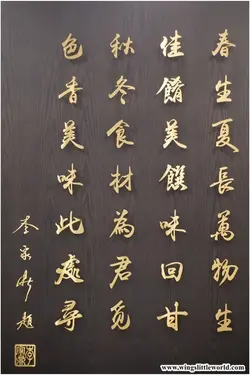 春生夏長萬物生
佳餚美饌味回甘
秋冬食材為君覓
色香美味此處尋
www.wingslittleworld.com